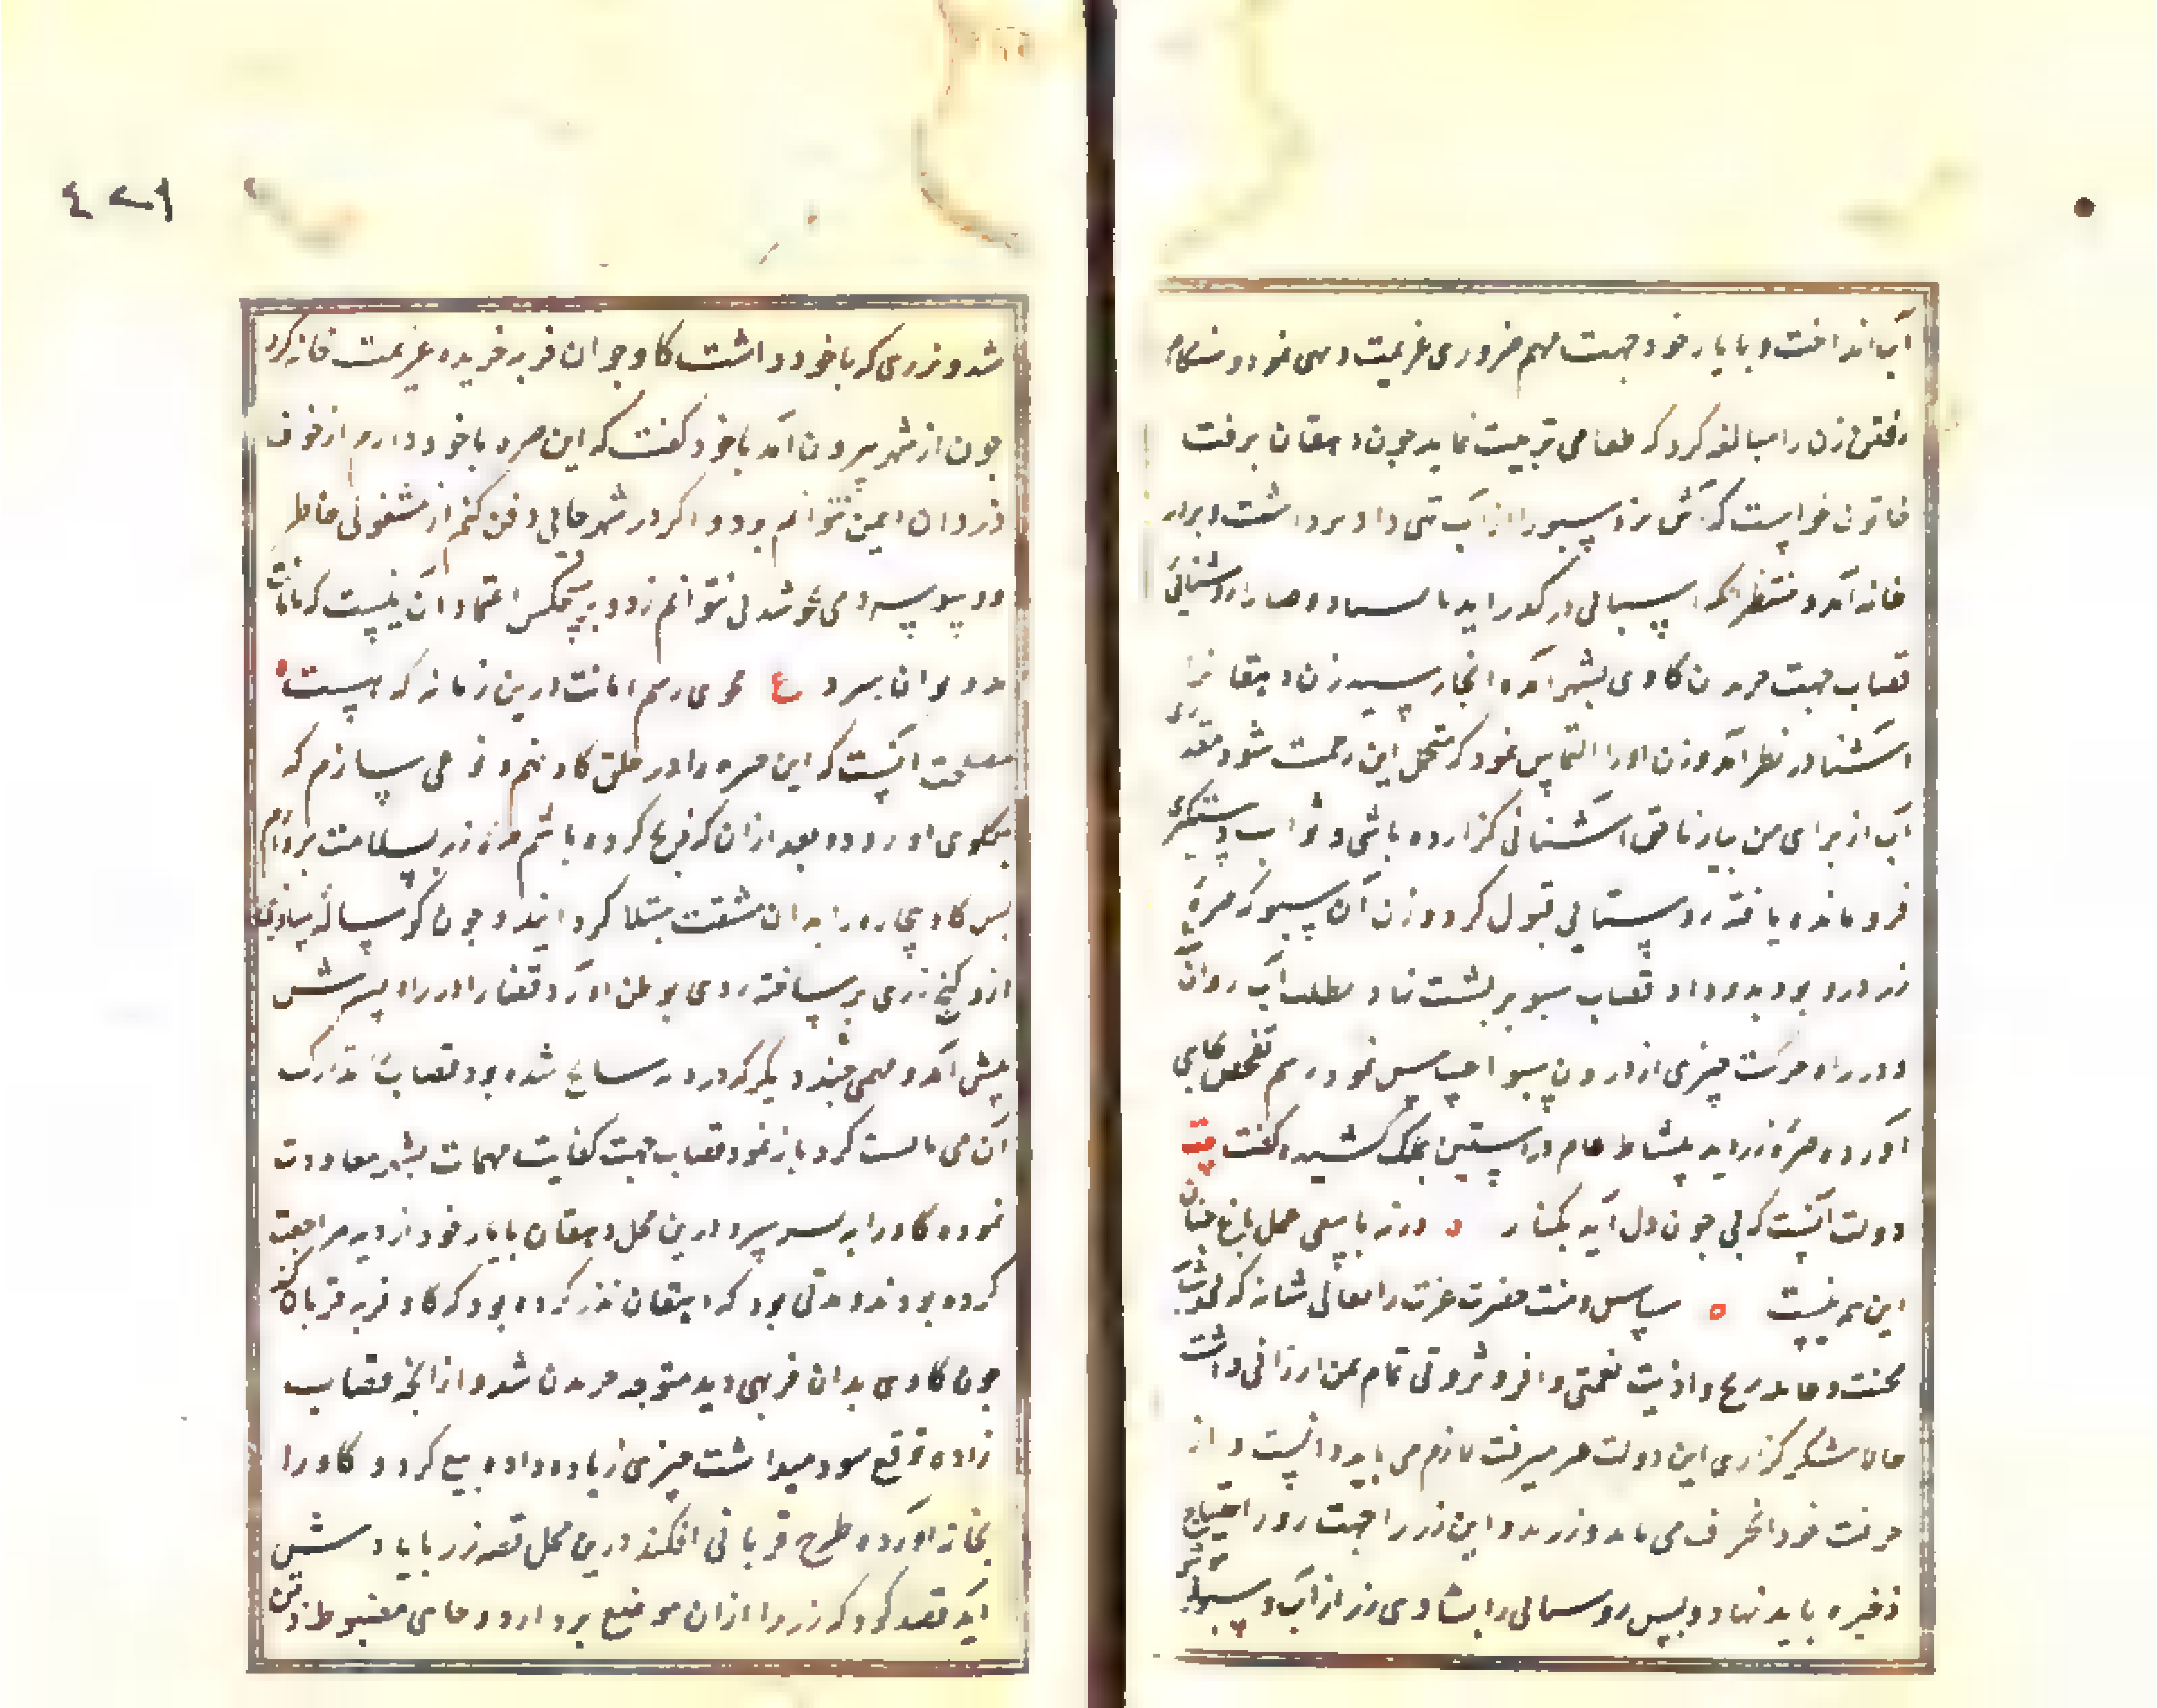 آب انداخت و با یار خود جهت مهم ضروری عزیمت دهی نمود و هنگام
رفتن زن را مبالغه کرد که طعامی ترتیب نماید چون دهقان برفت
خاتون خواست که آش پزد سبو را از آب تهی دید برداشت و بدر
خانه آمد و منتظر آنکه
قصاب جهت خریدن کاوی بشهر آمده انجا رسید زن دهقانرا
آشنا در نظر آمد و زن او را التماس نمود که متحمل این زحمت شود و قدری
آب از برای من بیار تا حق آشنائی کزارده باشی و ثواب دستکیری
فرو مانده یافته روستایی قبول کرد و زن آن سبو که صره
زر درو بود بدو داد قصاب سبو بر پشت نهاد و بطلب آب روان
و در راه حرکت چیزی از درون سبو احساس نمود رسم تفحص بجای
آورده صره زر دید بنشاط تمام در آستین ملک کشید و گفت بیت
دولت آنست که بی خون دل آید بکنار ورنه با سعی عمل باغ جنان
این همه نیست سپاس و منت حضرت عزت را تعالی شانه که بی مشقت
محنت و رنج و اذیت نعمتی وافر و ثروتی تمام بمن ارزانی داشت
حالا شکر کزاری این دولت غیر مترقب لازم می باید دانست و از
حرفت خود انحراف می باید ورزید و این زر را جهت روز احتیاج
ذخیره باید نهاد و پس روستائی با شادی زر از آب و سبو
شد و زری که با خود داشت کاو جوان فربه خریده عزیمت خانه کرد
چون از شهر بیرون آمد با خود کفت که این صره با خود دارم از خوف
دزدان ایمن نتوانم بود و اکر در شهر جائی دفن کنم از مشغولی خاطر
و وسوسه دمی خوشدل نتوانم زد و بر هیچکس اعتماد آن نیست که بامانت
بدو توان سپرد ع مجوی رسم امانت درین زمانه که نیست
مصلحت آنست که این صره را در حلق کاو نهم و نوعی سازم که
بکلوی او رود و بعد ازان که ذبح کرده باشم صره زر بسلامت بردارم
پس کاو بیچاره را بدان مشقت مبتلا کردانید و چون کوساله سامری
ازو کنج زری بر ساخته روی بوطن آورد و قضا را در راه پسرش
پیش آمد و مهمی چند دیکر که در ده سانح شده بود قصاب تدارک
آن می بایست کرد باز نمود قصاب جهت کفایت مهمات بشهر معاودت
نموده کاو را به پسر سپرد درین محل دهقان با یار خود از دیه مراجعت
کرده بودند و مدتی بود که دهقان نذر کرده بود که کاو فربه قربان کند
چون کاوی بدان فربهی دید متوجه خریدن شد و از آنجه قصاب
زاده توقع سود میداشت چیزی زیاده داده بیع کرد و کاو را
بخانه آورده طرح قربانی افکند درین محل قصه زر با یادش
آید قصد کرد که زر را ازان موضع بردارد و جای مضبوط دفن
٤٢١